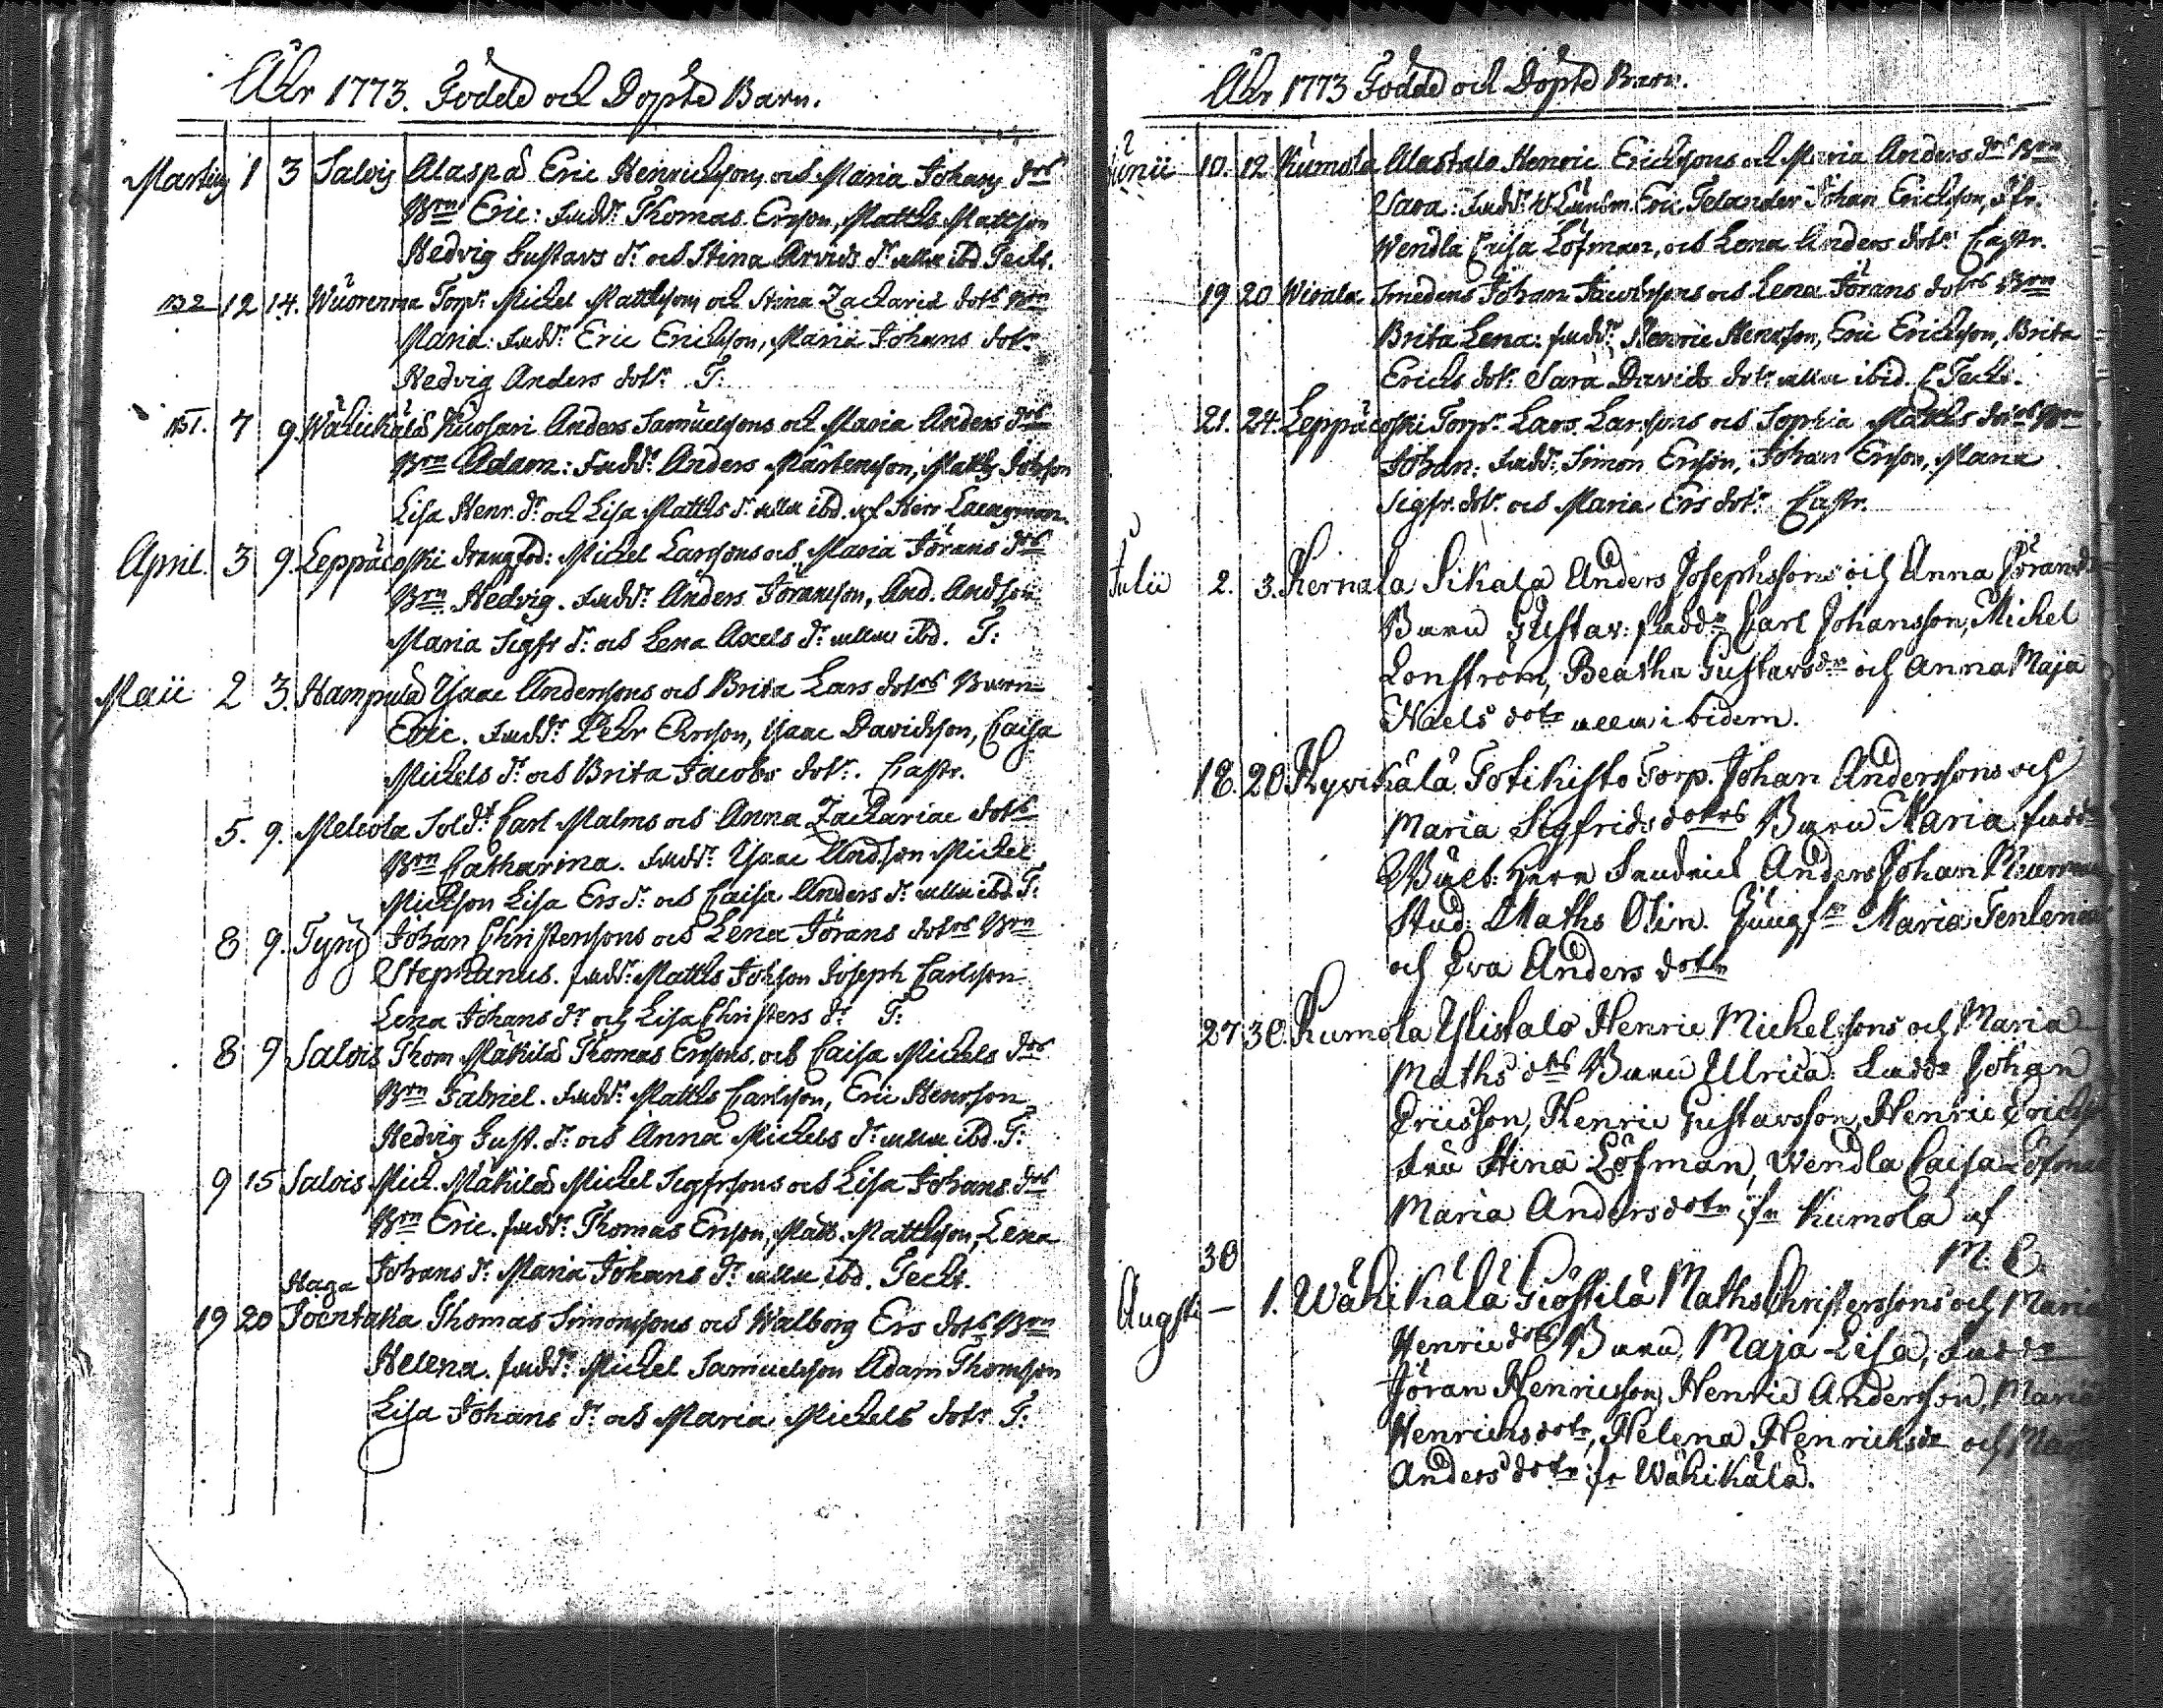 Åhr 1773. Födde och Döpte Barn.
Martius 1 3 Salois Alaspä Eric Henrichsons och Maria Johans drs
Brn Eric: Fadd: Thomas Erson, Matths Mattson
Hedvig Gustavs dr och Stina Arvids dr alla ibd Techt.
N 2 12 14. Wuorenma Torp: Michel Matthsons och Stina Zacharia dotrs Brn
Maria: Fadd: Eric Erichson, Maria Johans dotr
Hedvig Anders dotr T:
N 1. 7 9. Wähikälä Kuosari Anders Samuelsons och Maria Anders drs
Brn Adam: Fadd: Anders Mårtenson, Matths Johson
Lisa Henr. dr och Lisa Matths dr alla ibd. af Herr Lacugman.
April. 3 9. Leppäcoski drang Michel Larssons och Maria Jörans drs
Brn Hedvig. Fadd: Anders Jöransson, And. Andson
Maria Sigfr dr och Lena Axels dr alla ibd. T:
Maii 2 3. Hampula Ysaac Andersons och Brita Lars dotrs Barn
Eric. Fadd: Pehr Erson, Ysaac Davidson, Caisa
Michels dr och Brita Jacobs dotr. Castr.
5. 9. Melcola Sold: Carl Malms och Anna Zachariae dotrs
Brn Catharina. Fadd: Ysaac Andson Michel
Michson Lisa Ers dr och Caisa Anders dr alla ibd T:
8 9. Tyry Johan Christersons och Lena Jörans dotrs Brn
Stephanus. Fadd: Matths Johson Joseph Carlson
Lena Johans dr och Lisa Christers dr T:
8 9 Salois Thom Mäkilä Thomas Ersons och Caisa Michels drs
Brn Gabriel. Fadd: Matths Carlson, Eric Henrson
Hedvig Gust. dr och Anna Michels dr alla ibd. T:
9 15 Salois Mich. Mäkilä Michel Sigfrsons och Lisa Johans drs
Brn Eric. Fadd: Thomas Erson, Matts Matthson, Lena
Johans dr Maria Johans dr alla ibd. Techt.
Haga
19 20 Joentaka Thomas Simonsons och Walborg Ers dotrs Brn
Helena. Fadd: Michel Samuelsson Adam Thomson
Lisa Johans dr och Maria Michels dotr T:
Åhr 1773 Födde och Döpte Barn.
Junii 10. 12 Kumola Alastalo Henric Ericksons och Maria Anders drs Brn
Sara: Fadd: Länsm. Eric Telander Johan Erichson, Jfr.
Wendla Caisa Löfman, och Lena Anders dotr Castr.
19 20 Wirala Smedens Johan Jacobsons och Lena Jörans dotrs Brn
Brita Lena: Fadd: Henric Henrson, Eric Erichson, Brita
Erichs dotr Sara Davids dotr alla ibid. Techt.
21. 24. Leppäcoski Torp: Lars Larssons och Sophia Matths dotrs Brn
Johan: Fadd: Simon Erson, Johan Erson, Maria
Sigfr. dotr och Maria Ers dotr Castr.
Julii 2. 3. Kernala Sikala Anders Josephssons och Anna Jörans
Barn Gustav: Fadd: Carl Johansson, Michel
Lonström, Beatha Gustavs dr och Anna Maja
Niels dotr alla ibidem.
18. 20 Hyvikälä Totikisto Torp. Johan Anderssons och
Maria Sigfrids dotrs Barn Maria fadd:
Anders Johan
Stud: Maths Olin. Jungfr Maria Tenlenia
och Eva Anders dotr
27 30. Kumola Ylistalo Henric Michelssons och Maria
Maths drs Barn Ulrica: Fadd: Johan
Ericsson, Henric Gustavsson, Henric Erichs
Fru Stina Löfman, Wendla Caisa Löfman
Maria Anders dotr ifr Kumola af
30 M. C.
Augsti — 1. Wähikälä Giöstilä Maths Christerssons och Maria
Henric dotrs Barn Maja Lisa, Fadd:
Jöran Henricsson, Henric Andersson, Maria
Henrichs dotr, Helena Henricks dr och Mar
Anders dotr ifr Wähikälä.